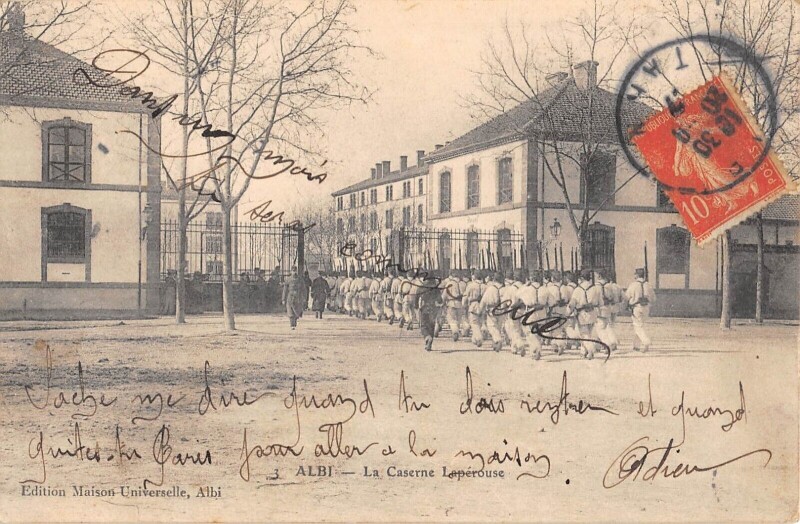 Dans un mois
tu seras
comme eux
TARN
POSTES
10
Tache me dire quand tu dois rentrer et quand
quites-tu Paris pour aller a la maison.
Adieu
3 ALBI — La Caserne Lapérouse
Edition Maison Universelle, Albi